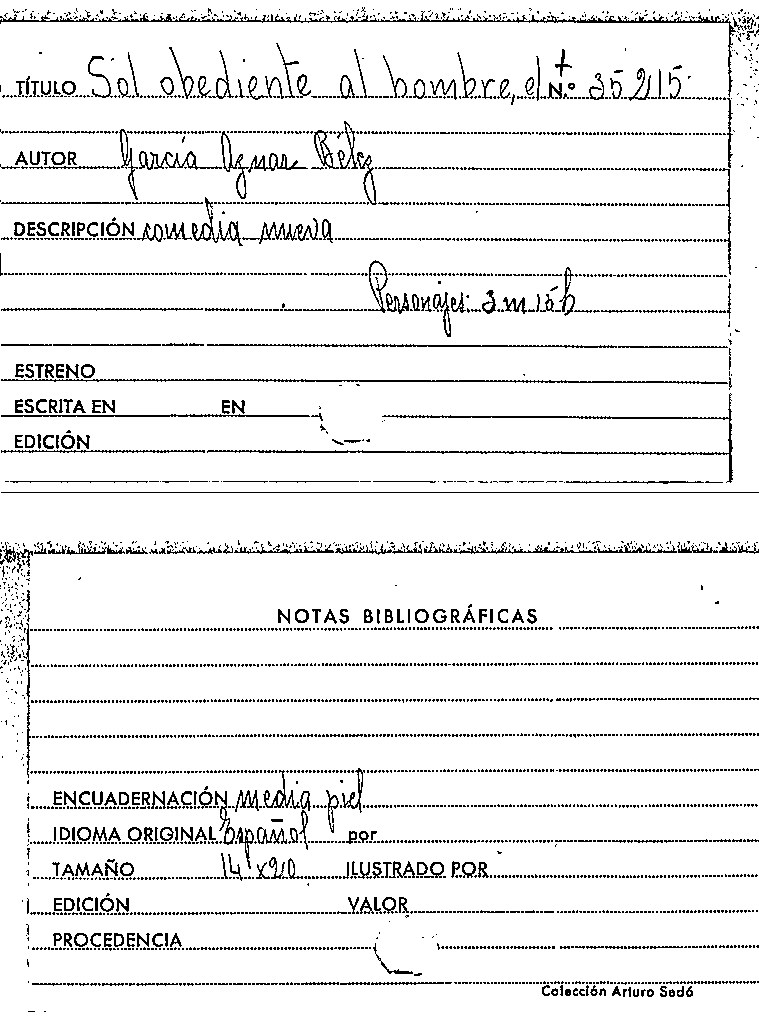 TÍTULO Sol obediente al hombre, el N.º 35215
AUTOR García Aznar Bélez
DESCRIPCIÓN comedia nueva
Personajes: 3 m 15 h
ESTRENO
ESCRITA EN EN
EDICIÓN
NOTAS BIBLIOGRÁFICAS
ENCUADERNACIÓN media piel
IDIOMA ORIGINAL Español por
TAMAÑO 14'x20 ILUSTRADO POR
EDICIÓN VALOR
PROCEDENCIA
Colección Arturo Sedó